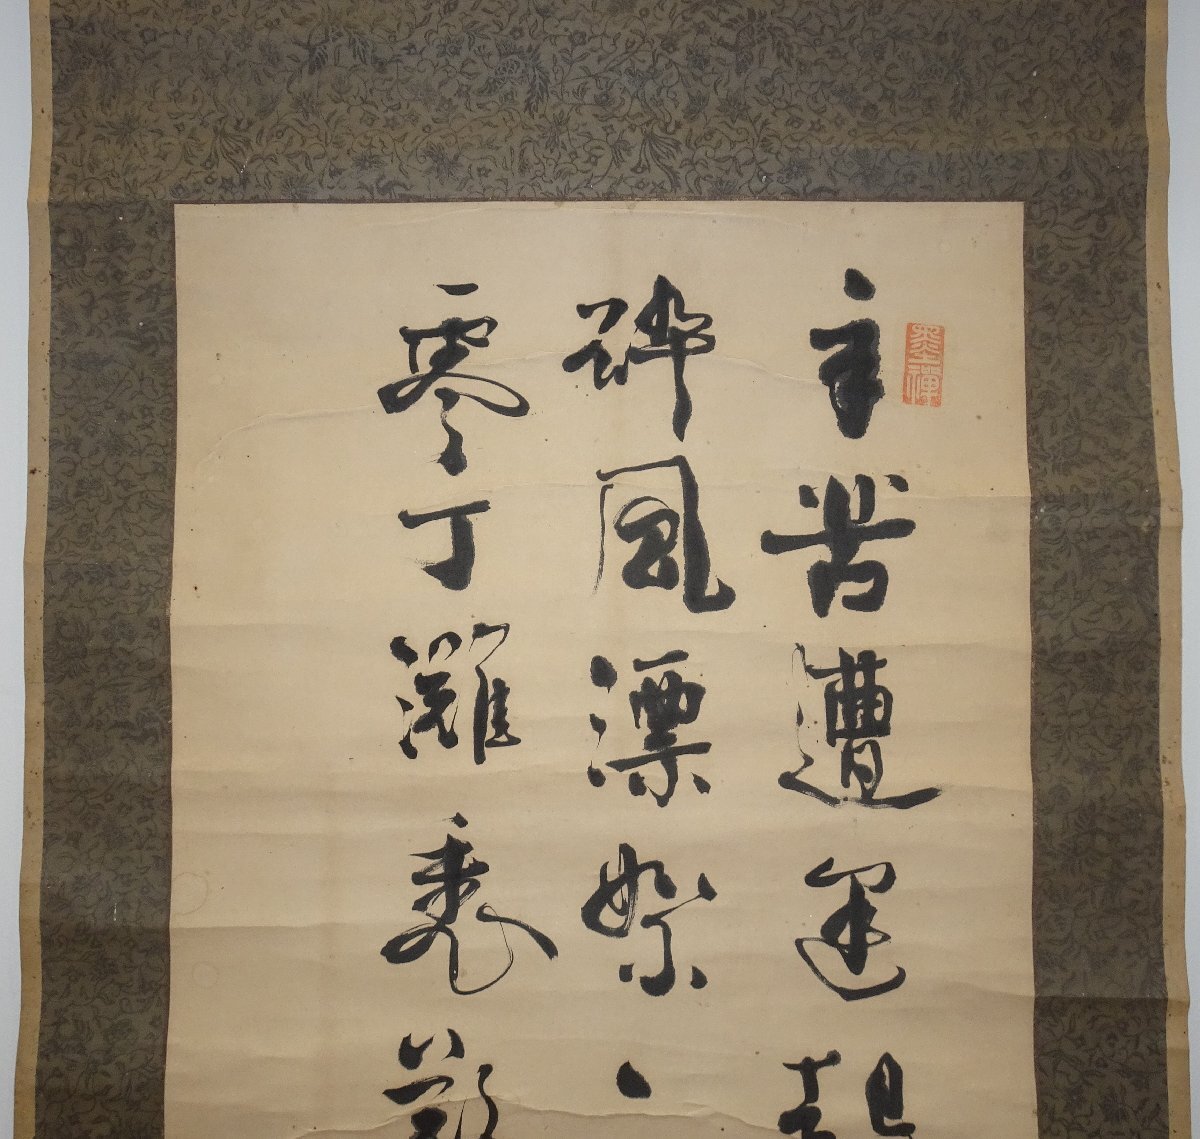 辛苦遭逢起
碎風漂絮
零丁灘裏歎